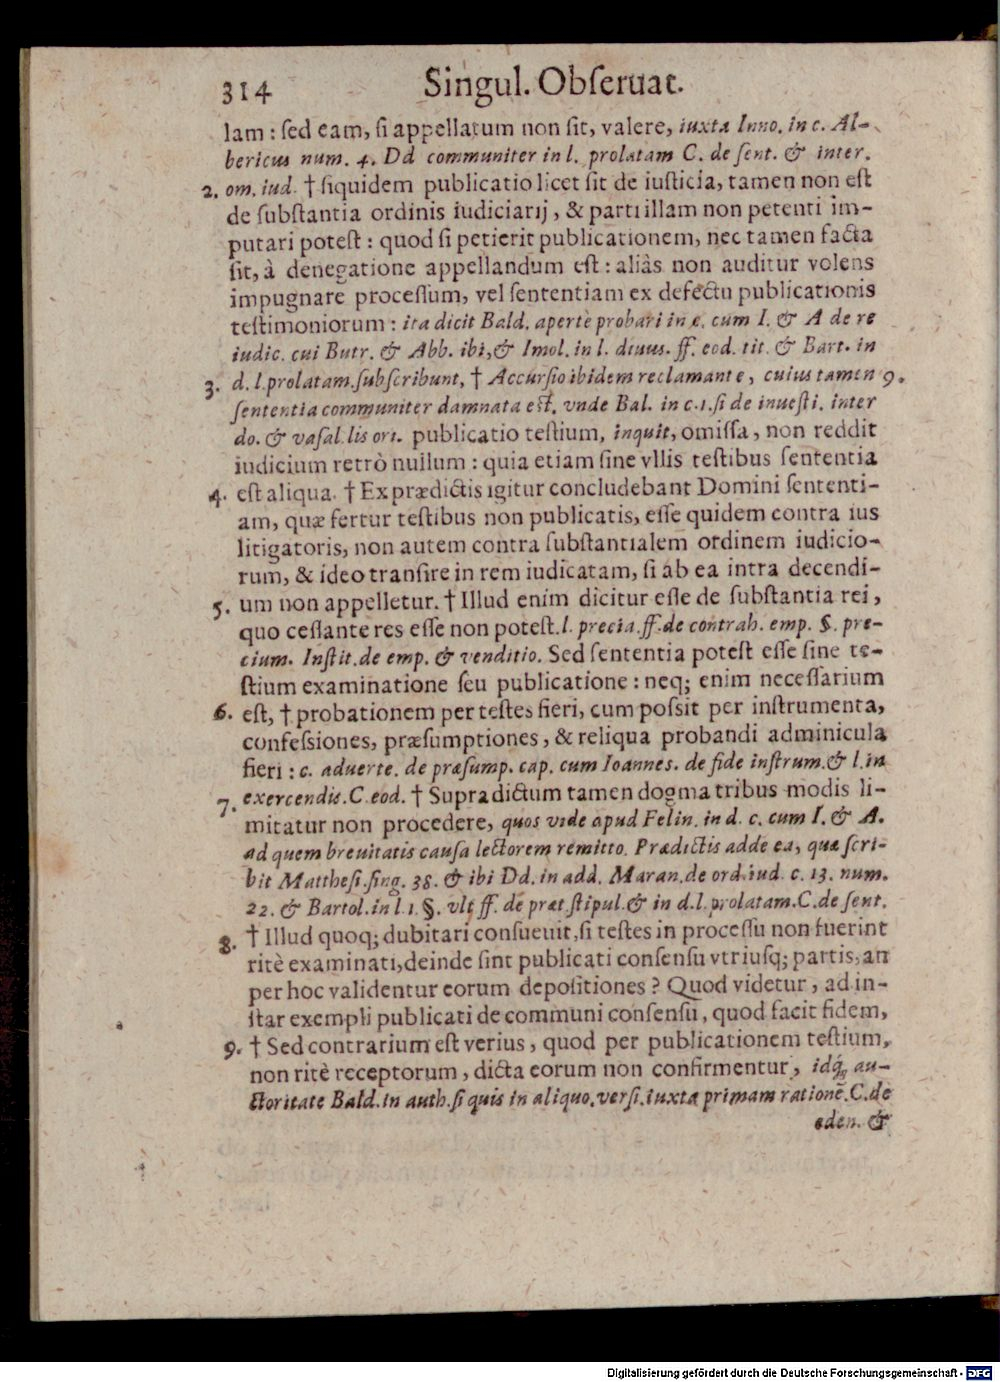 314 Singul. Obſeruat.
lam: ſed eam, ſi appellatum non ſit, valere, iuxta Inno. in c. Al-
bericus num. 4. Dd communiter in l. prolatam C. de ſent. & inter.
2. om. iud. † ſiquidem publicatio licet ſit de iuſticia, tamen non eſt
de ſubſtantia ordinis iudiciarij, & parti illam non petenti im-
putari poteſt: quod ſi petierit publicationem, nec tamen facta
ſit, à denegatione appellandum eſt: aliàs non auditur volens
impugnare proceſſum, vel ſententiam ex defectu publicationis
teſtimoniorum: ita dicit Bald. apertè probari in c. cum I. & A de re
iudic. cui Butr. & Abb. ibi, & Imol. in l. diuus. ff. eod. tit. & Bart. in
3. d. l. prolatam. ſubſcribunt, † Accurſio ibidem reclamante, cuius tamen 9.
ſententia communiter damnata eſt. vnde Bal. in c. 1. ſi de inueſti. inter
do. & vaſal. lis ori. publicatio teſtium, inquit, omiſſa, non reddit
iudicium retrò nullum: quia etiam ſine vllis teſtibus ſententia
4. eſt aliqua. † Ex prædictis igitur concludebant Domini ſententi-
am, quæ fertur teſtibus non publicatis, eſſe quidem contra ius
litigatoris, non autem contra ſubſtantialem ordinem iudicio-
rum, & ideo tranſire in rem iudicatam, ſi ab ea intra decendi-
5. um non appelletur. † Illud enim dicitur eſſe de ſubſtantia rei,
quo ceſſante res eſſe non poteſt. l. precia. ff. de contrah. emp. §. pre-
cium. Inſtit. de emp. & venditio. Sed ſententia poteſt eſſe ſine te-
ſtium examinatione ſeu publicatione: neq; enim neceſſarium
6. eſt, † probationem per teſtes fieri, cum poſsit per inſtrumenta,
confeſsiones, præſumptiones, & reliqua probandi adminicula
fieri: c. aduerte. de præſump. cap. cum Ioannes. de fide inſtrum. & l. in
7. exercendis. C. eod. † Supradictum tamen dogma tribus modis li-
mitatur non procedere, quos vide apud Felin. in d. c. cum I. & A.
ad quem breuitatis cauſa lectorem remitto. Prædictis adde ea, quæ ſcri-
bit Mattheſi. ſing. 38. & ibi Dd. in add. Maran. de ord. iud. c. 13. num.
22. & Bartol. in l. 1. §. vlt ff. de præt. ſtipul. & in d. l. prolatam. C. de ſent.
8. † Illud quoq; dubitari conſueuit, ſi teſtes in proceſſu non fuerint
ritè examinati, deinde ſint publicati conſenſu vtriuſq; partis, an
per hoc validentur eorum depoſitiones? Quod videtur, ad in-
ſtar exempli publicati de communi conſenſu, quod facit fidem,
9. † Sed contrarium eſt verius, quod per publicationem teſtium,
non ritè receptorum, dicta eorum non confirmentur, idq́; au-
ctoritate Bald. in auth. ſi quis in aliquo. verſi. iuxta primam rationē. C. de
eden. &
Digitalisierung gefördert durch die Deutsche Forschungsgemeinschaft - DFG